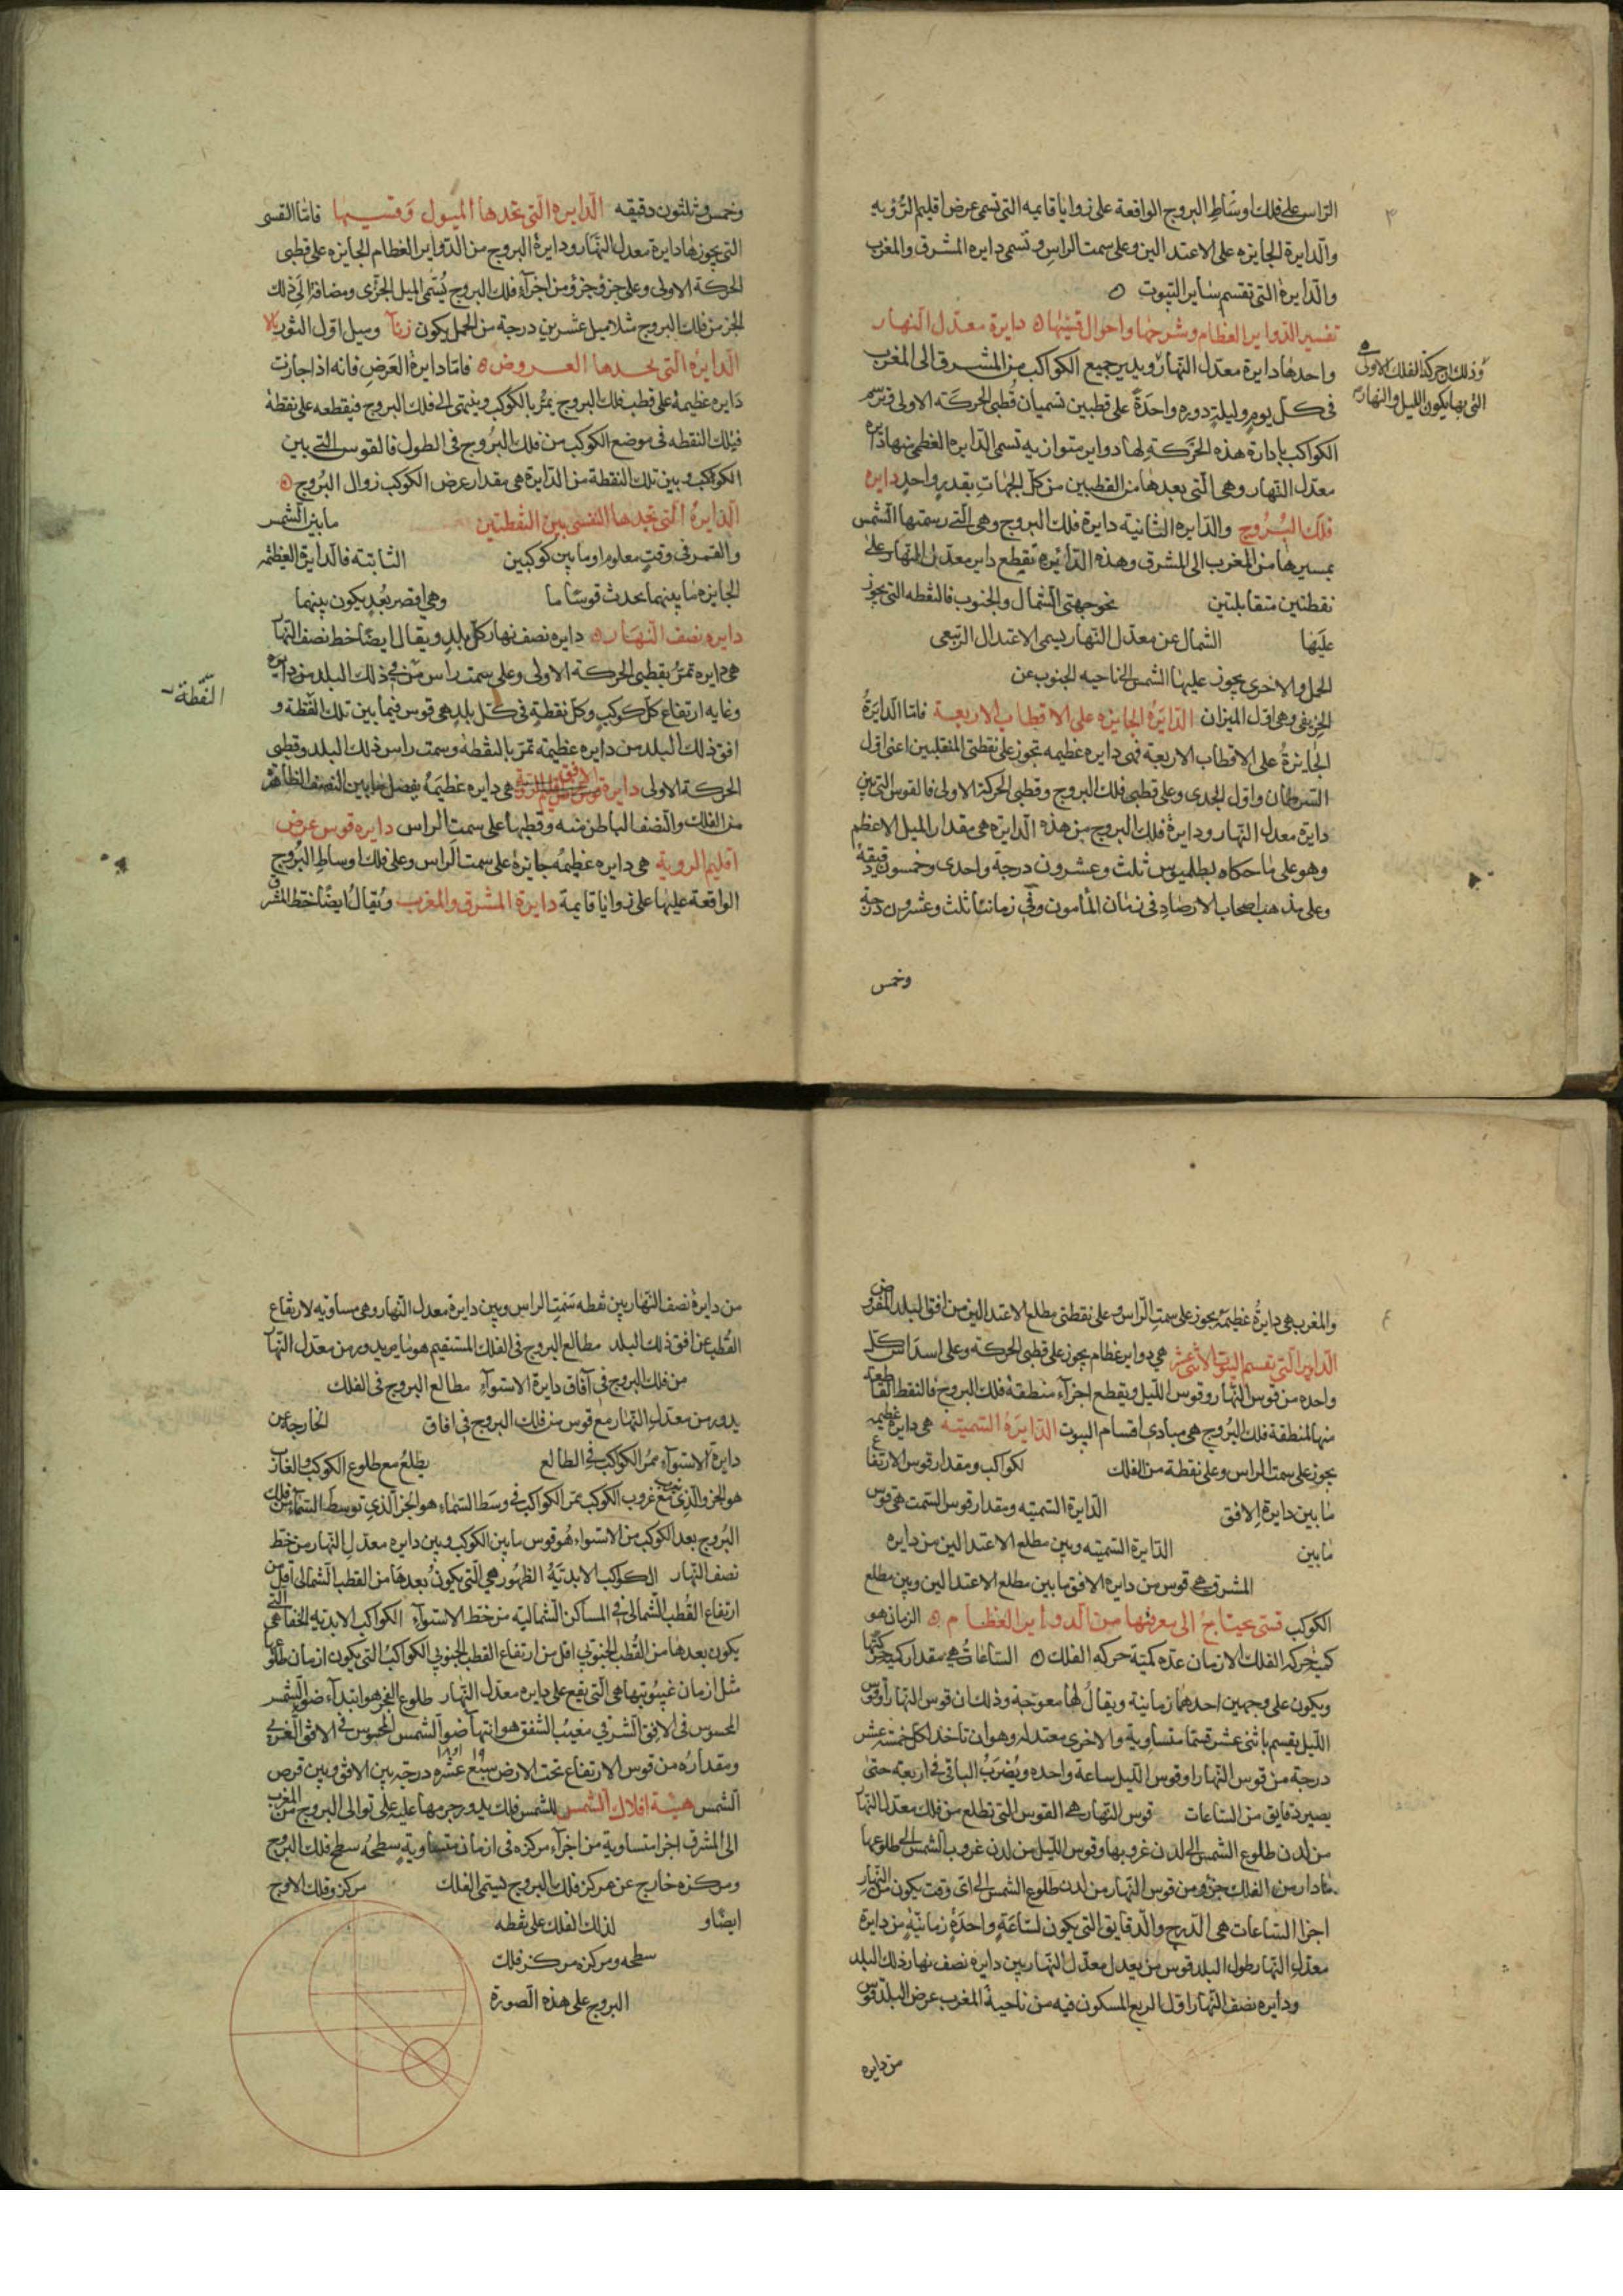 الراس على فلك اوساط البروج الواقعة على زوايا قايمه التى تسمى عرض اقليم الرؤيه
والدايرة الجايزه على الاعتدالين وعلى سمت الراس وتسمى دايره المشرق والمغرب
والدايرة التى تقسم ساير البيوت
تفسير الدواير العظام وشرحها واحوال قسيها دايرة معدل النهار
واحدها دايرة معدل النهار ويدير جميع الكواكب من المشرق الى المغرب
وذلك حركة الفلك الاولى
التى بها يكون الليل والنهار
فى كل يوم وليلة دوره واحدة على قطبين تسميان قطبى الحركة الاولى وترسم
الكواكب بادارة هذه الحركة لها دواير متوازيه تسمى الدايره العظمى منها دايره
معدل النهار وهى التى بعدها من القطبين من كل الجهات بقدر واحد دايره
فلك البروج والدايره الثانية دايرة فلك البروج وهى التى رسمتها الشمس
بمسيرها من المغرب الى المشرق وهذه الدائيره تقطع داير معدل النهار على
نقطتين متقابلتين نحو جهتى الشمال والجنوب فالنقطه التى يجوز
عليها الشمال عن معدل النهار يسمى الاعتدال الربيعى
الحمل والاخرى يجوز عليها الشمس الى ناحيه الجنوب عن
الخريفى وهى اول الميزان الدايرة الجايزه على الاقطاب الاربعة فاما الدايرة
الجايزة على الاقطاب الاربعة فهى دايره عظيمه تجوز على نقطتى المنقلبين اعنى اول
السرطان واول الجدى وعلى قطبى فلك البروج وقطبى الحركة الاولى فالقوس التى بين
دايرة معدل النهار ودايرة فلك البروج من هذه الدايرة هى مقدار الميل الاعظم
وهو على ما حكاه بطلميوس ثلث وعشرون درجة واحدى وخمسون دقيقة
وعلى مذهب اصحاب الارصاد فى زمان المأمون وفى زماننا ثلث وعشرون درجة
وخمس
وخمس وثلثون دقيقه الدايره التى تحدها الميول وقسيها فاما القسى
التى يجوزها دايرة معدل النهار ودايرة البروج من الدواير العظام الجايزه على قطبى
الحركة الاولى وعلى جزؤ جزؤ من اجزاء فلك البروج يسمى الميل الجزؤى ومضافا الى ذلك
الجز من فلك البروج مثلا ميل عشرين درجة من الحمل يكون وميل اول الثور
الدايرة التى تحدها العروض فاما دايرة العرض فانه اذا جازت
دايره عظيمة على قطب فلك البروج يمر بالكوكب وينتهى الى فلك البروج فيقطعه على نقطة
فتلك النقطه فى موضع الكوكب من فلك البروج فى الطول فالقوس التى بين
الكوكب وبين تلك النقطة من الدايرة هى مقدار عرض الكوكب زوال البروج
الدايرة التى تحدها القسى بين النقطتين ما بين الشمس
والقمر فى وقت معلوم او ما بين كوكبين الثابتة فالدايرة العظيمه
الجايزه ما بينهما يحدث قوسا ما وهى اقصر بعد يكون بينهما
دايره نصف النهار دايره نصف نهار كل بلد ويقال ايضا خط نصف النهار
هى دايره تمر بقطبى الحركة الاولى وعلى سمت راس من فى ذلك البلد من دايره
النقطة
وغايه ارتفاع كل كوكب وكل نقطة فى كل بلد هى قوس فيما بين تلك النقطة و
افق ذلك البلد من دايره عظيمه تمر بالنقطة وسمت راس ذلك البلد وقطبى
الحركة الاولى دايرة الافق هى دايره عظيمه يفصل ما بين النصف الظاهر
من الفلك والنصف الباطن منه وقطبها على سمت الراس دايره قوس عرض
اقليم الروية هى دايره عظيمه جايزة على سمت الراس وعلى فلك اوساط البروج
الواقعة عليها على زوايا قايمة دايرة المشرق والمغرب ويقال ايضا خط المشرق
والمغرب هى دايرة عظيمه يجوز على سمت الراس وعلى نقطتى مطلع الاعتدالين من افق البلد المفروض
الدواير التى تقسم البيوت الاثنى عشر هى دواير عظام يجوز على قطبى الحركة وعلى اسداس كل
واحده من قوس النهار وقوس الليل ويقطع اجزاء منطقة فلك البروج فالنقط القاطعة
منها لمنطقة فلك البروج هى مبادى اقسام البيوت الدايرة السمتيه هى دايرة عظيمه
يجوز على سمت الراس وعلى نقطة من الفلك لكواكب ومقدار قوس الارتفاع
ما بين دايرة الافق الدايرة السمتيه ومقدار قوس السمت هى قوس
ما بين الدايرة السمتيه وبين مطلع الاعتدالين من دايره
المشرق هى قوس من دايره الافق ما بين مطلع الاعتدالين وبين مطلع
الكوكب قسى يحتاج الى معرفتها من الدواير العظام الزمان هو
حركة الفلك الازمان عدة كمية حركه الفلك الساعات هى مقدار
ويكون على وجهين احدهما زمانية ويقال لها معوجة وذلك ان قوس النهار او قوس
الليل يقسم باثنى عشر قسما متساوية والاخرى معتدله وهو ان تاخذ لكل خمسة عشر
درجة من قوس النهار او قوس الليل ساعة واحده ويضرب الباقى فى اربعة حتى
يصير دقايق من الساعات قوس النهار هى القوس التى تطلع من فلك معدل النهار
من لدن طلوع الشمس الى لدن غروبها وقوس الليل من لدن غروب الشمس الى طلوعها
مادار من الفلك جزؤ من قوس النهار من لدن طلوع الشمس الى اى وقت يكون من النهار
اجزا الساعات هى الدرج والدقايق التى يكون لساعة واحدة زمانية من دايرة
معدل النهار طول البلد قوس من معدل النهار بين دايره نصف نهار ذلك البلد
ودايره نصف النهار اول الربع المسكون فيه من ناحية المغرب عرض البلد قوس
من دايره
من دايرة نصف النهار بين نقطه سمت الراس وبين دايرة معدل النهار وهى مساوية لارتفاع
القطب عن افق ذلك البلد مطالع البروج فى الفلك المستقيم هو ما يدور من معدل النهار
من فلك البروج فى آفاق دايرة الاستواء مطالع البروج فى الفلك
يدور من معدل النهار مع قوس من فلك البروج فى افاق الخارجة عن
دايرة الاستواء ممر الكواكب فى الطالع يطلع مع طلوع الكوكب
هو الجزو الذى مع غروب الكوكب ممر الكواكب فى وسط السماء هو الجز الذى توسط السماء من فلك
البروج بعد الكوكب من الاستواء هو قوس ما بين الكوكب وبين دايره معدل النهار من خط
نصف النهار الكواكب الابدية الظهور هى التى يكون بعدها من القطب الشمالى اقل من
ارتفاع القطب الشمالى فى المساكن الشمالية من خط الاستواء الكواكب الابديه الخفا هى التى
يكون بعدها من القطب الجنوبى اقل من ارتفاع القطب الجنوبى الكواكب التى يكون ازمان طلوعها
مثل ازمان غيبوبتها هى التى يقع على دايره معدل النهار طلوع الفجر هو ابتداء ضو الشمس
المحسوس فى الافق الشرقى مغيب الشفق هو انتهاء ضو الشمس المحسوس فى الافق الغربى
ومقداره من قوس الارتفاع تحت الارض سبع عشرة درجة بين الافق وبين قرص
الشمس هيئة افلاك الشمس للشمس فلك يدور جرمها عليه على توالى البروج من المغرب
الى المشرق اجزا متساوية من اجزاء مركزه فى ازمان متساوية سطحه سطح فلك البروج
ومركزه خارج عن مركز فلك البروج يسمى الفلك مركز وفلك الاوج
ايضا و لذلك الفلك على نقطه
سطحه ومركزه مركز فلك
البروج على هذه الصورة